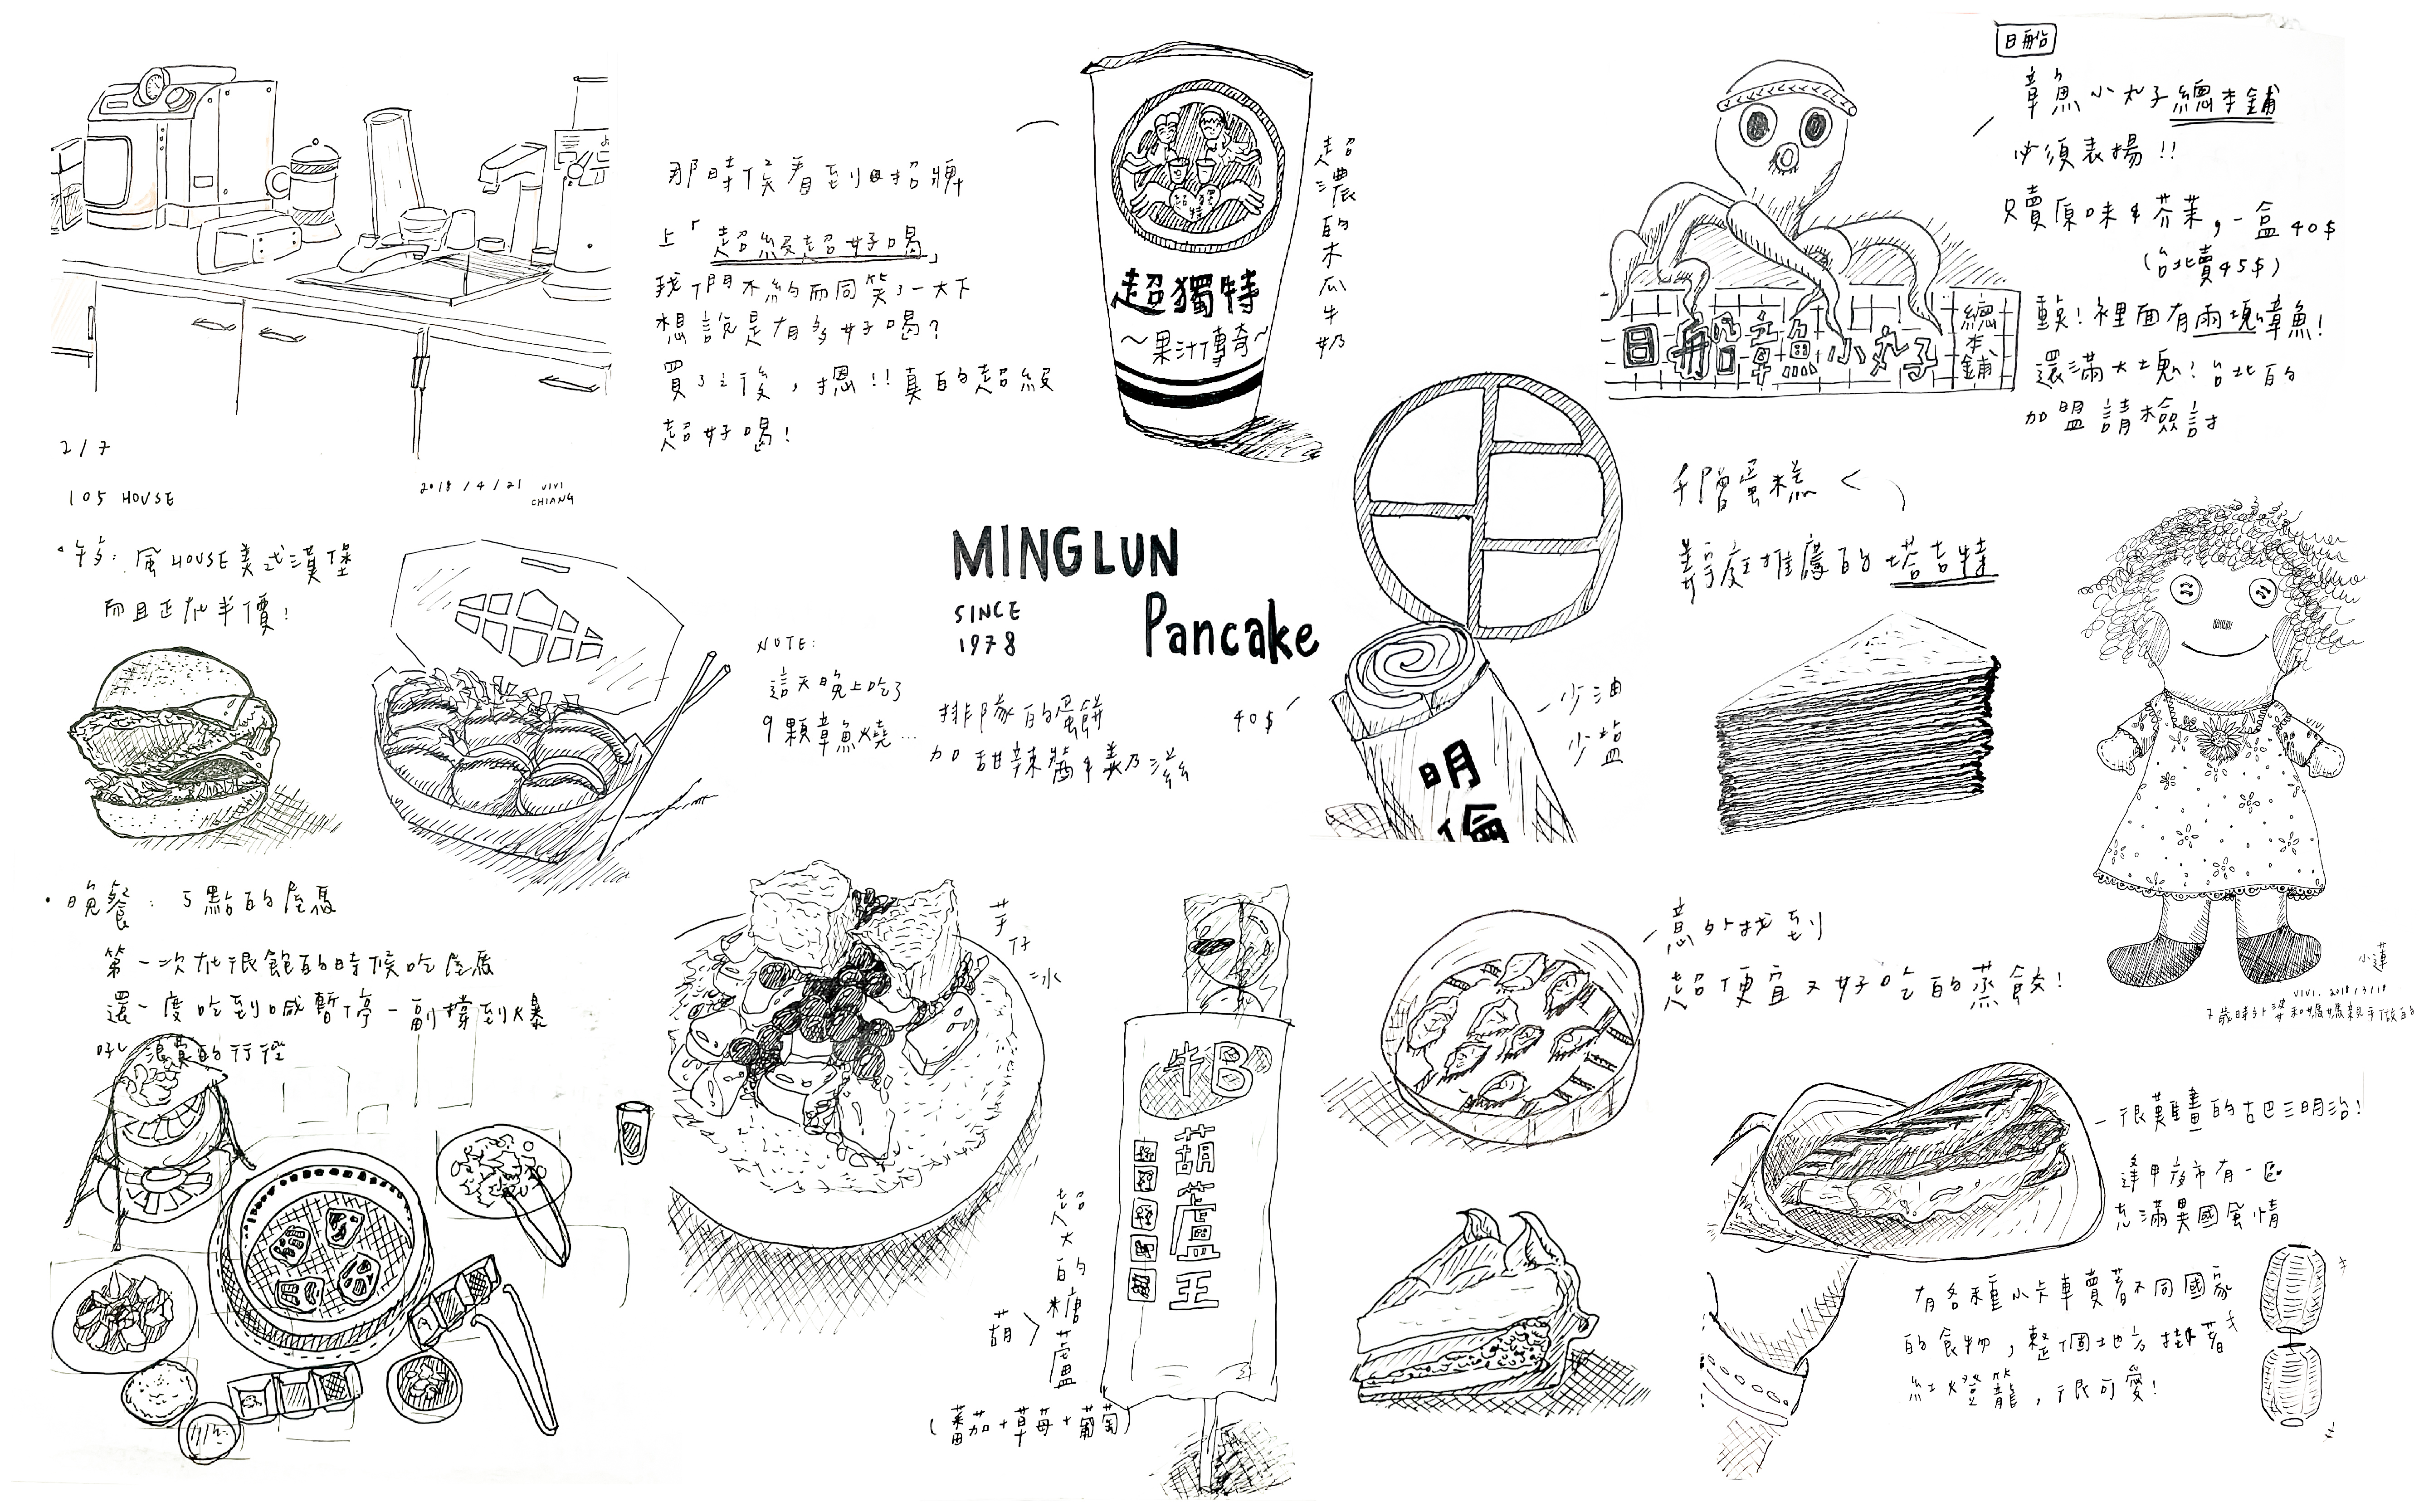 2/7
105 HOUSE
2018/4/21 VIVI
CHIANG
那時候看到招牌
上「超級超好喝」
我們不約而同笑了一大下
想說是有多好喝?
買了之後，摁!!真的超級
超好喝!
超獨特
~果汁傳奇~
超濃的木瓜牛奶
日船
章魚小丸子總本舖
必須表揚!!
只賣原味&芥茉，一盒40$
(台北賣45$)
重點!裡面有兩塊章魚!
還滿大塊!台北的
加盟請檢討
日船章魚小丸子
總本舖
午:瘋HOUSE美式漢堡
而且正在半價!
NOTE:
這天晚上吃了
9顆章魚燒...
MINGLUN
SINCE
1978
Pancake
排隊的蛋餅
加甜辣醬&美乃滋
40$
少油
少鹽
明倫
千層蛋糕<
推薦的塔吉特
VIVI
小蓮
VIVI. 2018/3/18
7歲時外婆和媽媽親手做的
·晚餐:5點的屋馬
第一次在很飽的時候吃屋馬
還一度吃到喊暫停一副撐到爆
浪費的行徑
芋仔冰
牛B
葫蘆王
超大的糖葫蘆
(蕃茄+草莓+葡萄)
意外找到
超便宜又好吃的蒸餃!
很難畫的古巴三明治!
逢甲夜市有一區
充滿異國風情
有各種小卡車賣著不同國家
的食物，整個地方掛著
紅燈籠，很可愛!